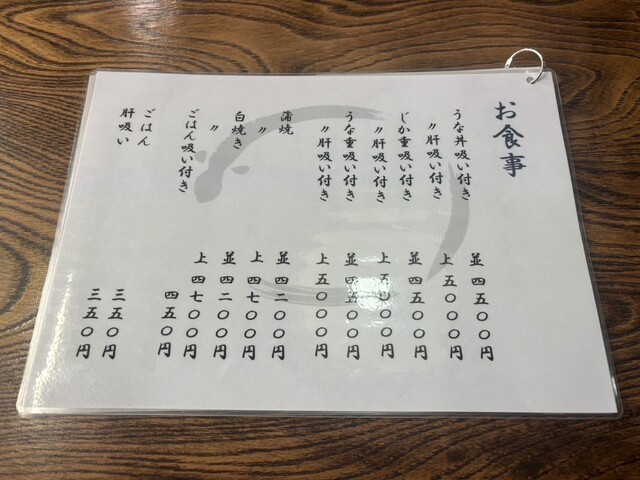 お食事
うな丼吸い付き 並 四五〇〇円
〃肝吸い付き 上 五〇〇〇円
じか重吸い付き 並 四五〇〇円
〃肝吸い付き 上 五五〇〇円
うな重吸い付き 並 四五〇〇円
〃肝吸い付き 上 五〇〇〇円
蒲焼 並 四二〇〇円
〃 上 四七〇〇円
白焼き 並 四二〇〇円
〃 上 四七〇〇円
ごはん吸い付き 四五〇円
ごはん 三五〇円
肝吸い 三五〇円